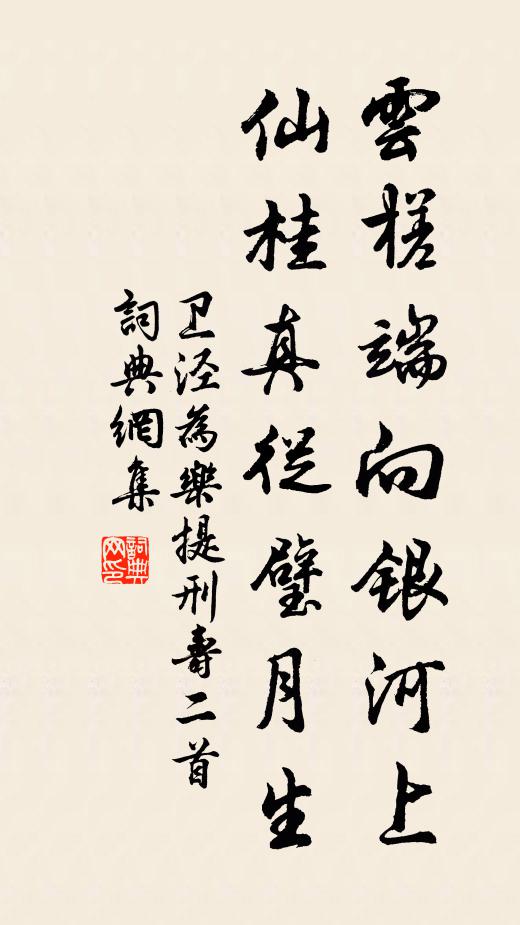 雲槎端向銀河上
仙桂真從璧月生
卫泾為樂提刑壽二首
詞典網集
詞典
网印